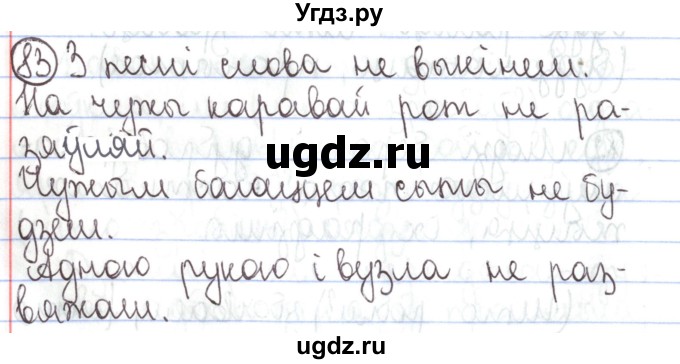 Угдз.ру
83 З песні слова не выкінеш.
На чужы каравай рот не ра-
зяўляй.
ugdz.ru
Чужым багаццем сыты не бу-
дзеш.
Адною рукою і вузла не раз-
вяжаш.
ugdz.ru